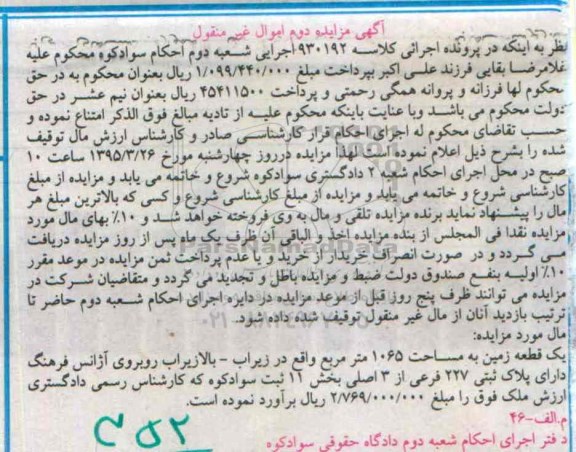 آگهی مزایده دوم اموال غیر منقول
نظر به اینکه در پرونده اجرائی کلاسه ۹۳۰۱۹۲ اجرایی شعبه دوم احکام سوادکوه محکوم علیه
غلامرضا بقایی فرزند علی اکبر بپرداخت مبلغ ۱/۰۹۹/۴۴۰/۰۰۰ ریال بعنوان محکوم به در حق
محکوم لها فرزانه و پروانه همگی رحمتی و پرداخت ۴۵۴۱۱۵۰۰ ریال بعنوان نیم عشر در حق
دولت محکوم می باشد وبا عنایت باینکه محکوم علیه از تادیه مبالغ فوق الذکر امتناع نموده و
حسب تقاضای محکوم له اجرای احکام قرار کارشناسی صادر و کارشناس ارزش مال توقیف
شده را بشرح ذیل اعلام نموده است لهذا مزایده درروز چهارشنبه مورخ ۱۳۹۵/۳/۲۶ ساعت ۱۰
صبح در محل اجرای احکام شعبه ۲ دادگستری سوادکوه شروع و خاتمه می یابد و مزایده از مبلغ
کارشناسی شروع و خاتمه می یابد و مزایده از مبلغ کارشناسی شروع و کسی که بالاترین مبلغ هر
مال را پیشنهاد نماید برنده مزایده تلقی و مال به وی فروخته خواهد شد و ۱۰٪ بهای مال مورد
مزایده نقدا فی المجلس از بنده مزایده اخذ و الباقی آن ظرف یک ماه پس از روز مزایده دریافت
می گردد و در صورت انصراف خریدار از خرید و یا عدم پرداخت ثمن مزایده در موعد مقرر
۱۰٪ اولیه بنفع صندوق دولت ضبط و مزایده باطل و تجدید می گردد و متقاضیان شرکت در
مزایده می توانند ظرف پنج روز قبل از موعد مزایده در دایره اجرای احکام شعبه دوم حاضر تا
ترتیب بازدید آنان از مال غیر منقول توقیف شده داده شود.
مال مورد مزایده:
یک قطعه زمین به مساحت ۱۰۶۵ متر مربع واقع در زیراب - بالازیراب روبروی آژانس فرهنگ
دارای پلاک ثبتی ۲۲۷ فرعی از ۳ اصلی بخش ۱۱ ثبت سوادکوه که کارشناس رسمی دادگستری
ارزش ملک فوق را مبلغ ۲/۷۶۹/۰۰۰/۰۰۰ ریال برآورد نموده است.
م.الف-۴۶
دفتر اجرای احکام شعبه دوم دادگاه حقوقی سوادکوه
ParsNamadData